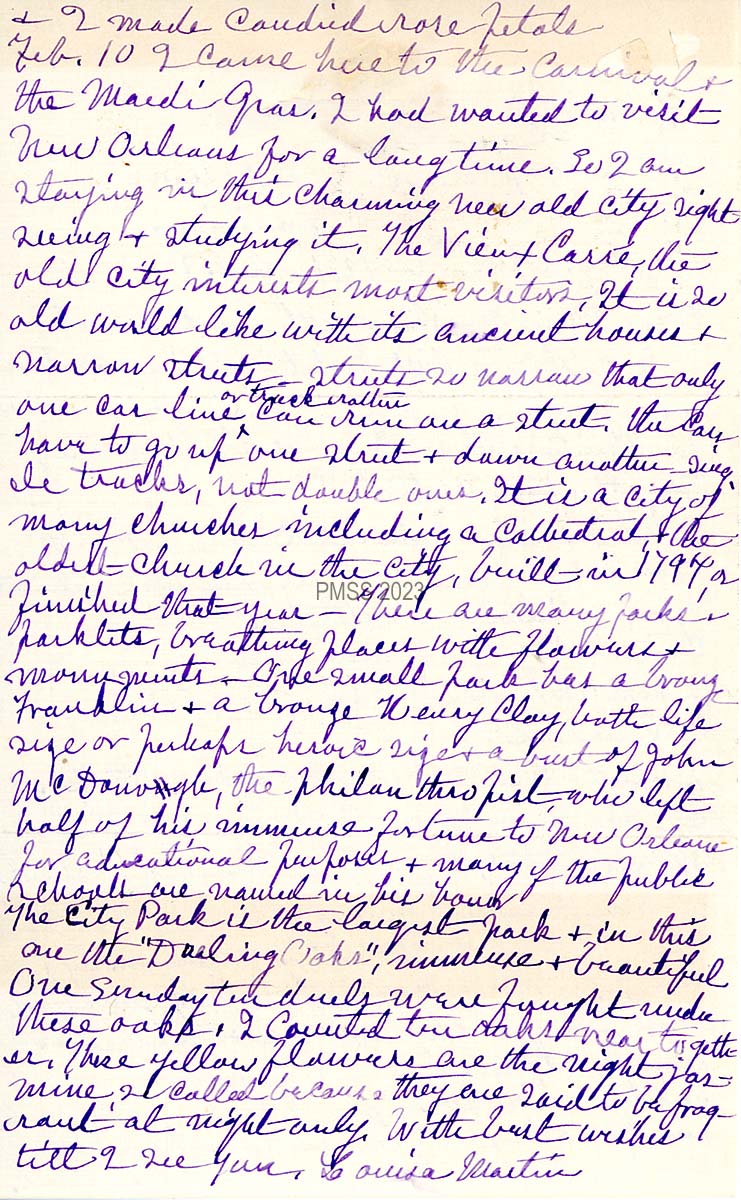 & I made candied rose petals
Feb. 10 I came here to the Carnival &
the Mardi Gras. I had wanted to visit
New Orleans for a long time. So I am
staying in this charming new old city sight
seeing & studying it. The Vieux Carré, the
old city interests most visitors. It is so
old world like with its ancient houses &
narrow streets – streets so narrow that only
or track rather
one car line can run on a street. The cars
have to go up one street & down another – sing
le tracks, not double ones. It is a city of
many churches including a Cathedral, & the
oldest church in the city, built in 1794, or
PMSS 2023
finished that year – There are many parks &
parklets, breathing places with flowers &
monuments – One small park has a bronze
Franklin & a bronze Henry Clay, both life
size or perhaps heroic size & a bust of John
McDonough, the philanthropist, who left
half of his immense fortune to New Orleans
for educational purposes & many of the public
schools are named in his honor
The City Park is the largest park & in this
are the "Dueling Oaks", immense & beautiful
One Sunday ten duels were fought under
these oaks. I counted ten oaks near togeth
er. These yellow flowers are the night jas-
mine, so called because they are said to be frag-
rant at night only. With best wishes
till I see you. Louisa Martin